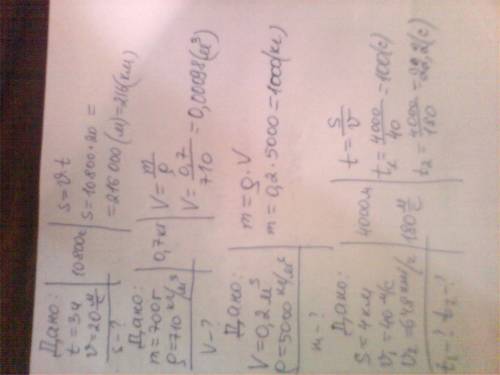 Дано:
t = 3ч
v = 20 м/с
s - ?
10800с
s = v · t
s = 10800 · 20 =
= 216 000 (м) = 216 (км)
Дано:
m = 700г
ρ = 710 кг/м³
V - ?
0,7кг
V = m/ρ
V = 0,7/710 = 0,00098 (м³)
Дано:
V = 0,2 м³
ρ = 5000 кг/м³
m - ?
m = ρ · V
m = 0,2 · 5000 = 1000 (кг)
Дано:
S = 4 км
v₁ = 40 м/с
v₂ = 648 км/ч
t₁ - ? t₂ - ?
4000м
180 м/с
t = S/v
t₂ = 4000/40 = 100 (с)
t₂ = 4000/180 = 22,2 (с)